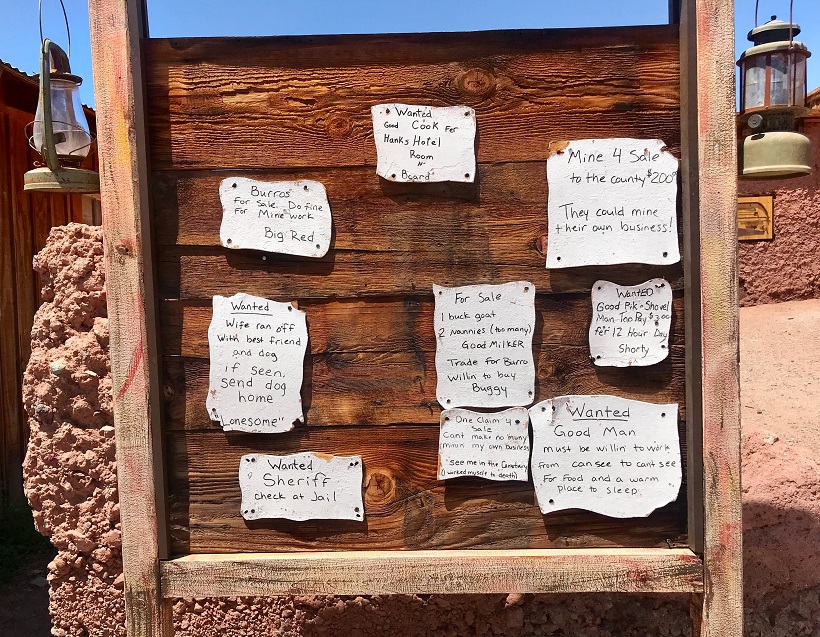 Wanted
Good Cook For
Hanks Hotel
Room
N'
Board
Mine 4 Sale
to the county $200⁰
They could mine
their own business!
Burros
For Sale. Do fine
For Mine work
Big Red
Wanted
Wife ran off
With best friend
and dog
if seen,
send dog
home
"Lonesome"
For Sale
1 buck goat
2 Nannies (too many)
Good Milker
Trade for Burro
Willin to buy
Buggy
Wanted
Good Pik-n-Shovel
Man Too Pay $3.00
fer 12 Hour Day
Shorty
One Claim 4
Sale
Cant make no muny
minin my own business
See me in the Cemetary
(I worked myself to death)
Wanted
Good Man
must be willin to work
from can see to cant see
For food and a warm
place to sleep.
Wanted
Sheriff
check at Jail